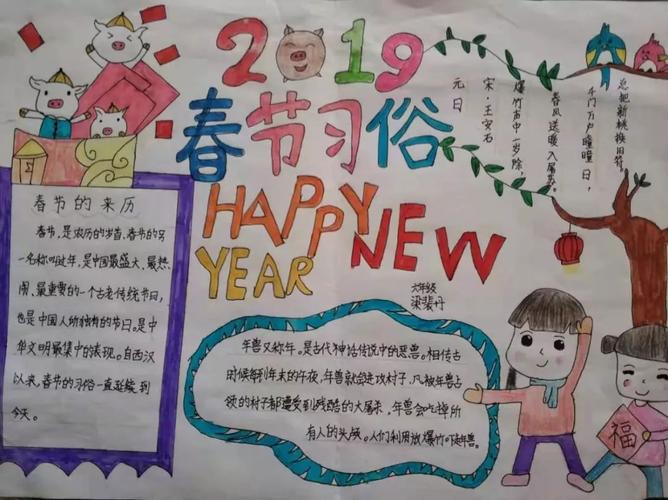 2019
春节习俗
HAPPY NEW
YEAR
元日
宋·王安石
爆竹声中一岁除,
春风送暖入屠苏。
千门万户曈曈日,
总把新桃换旧符。
春节的来历
春节,是农历的岁首,春节的另
一名称叫过年,是中国最盛大、最热
闹、最重要的一个古老传统节日,
也是中国人所独有的节日。是中
华文明最集中的表现。自西汉
以来,春节的习俗一直延续到
今天。
六年级
梁裴丹
年兽又称年,是古代神话传说中的恶兽。相传古
时候每到年末的午夜,年兽就会进攻村子,凡被年兽占
领的村子都遭受到残酷的大屠杀,年兽会吃掉所
有人的头颅。人们利用放爆竹吓走年兽。
福